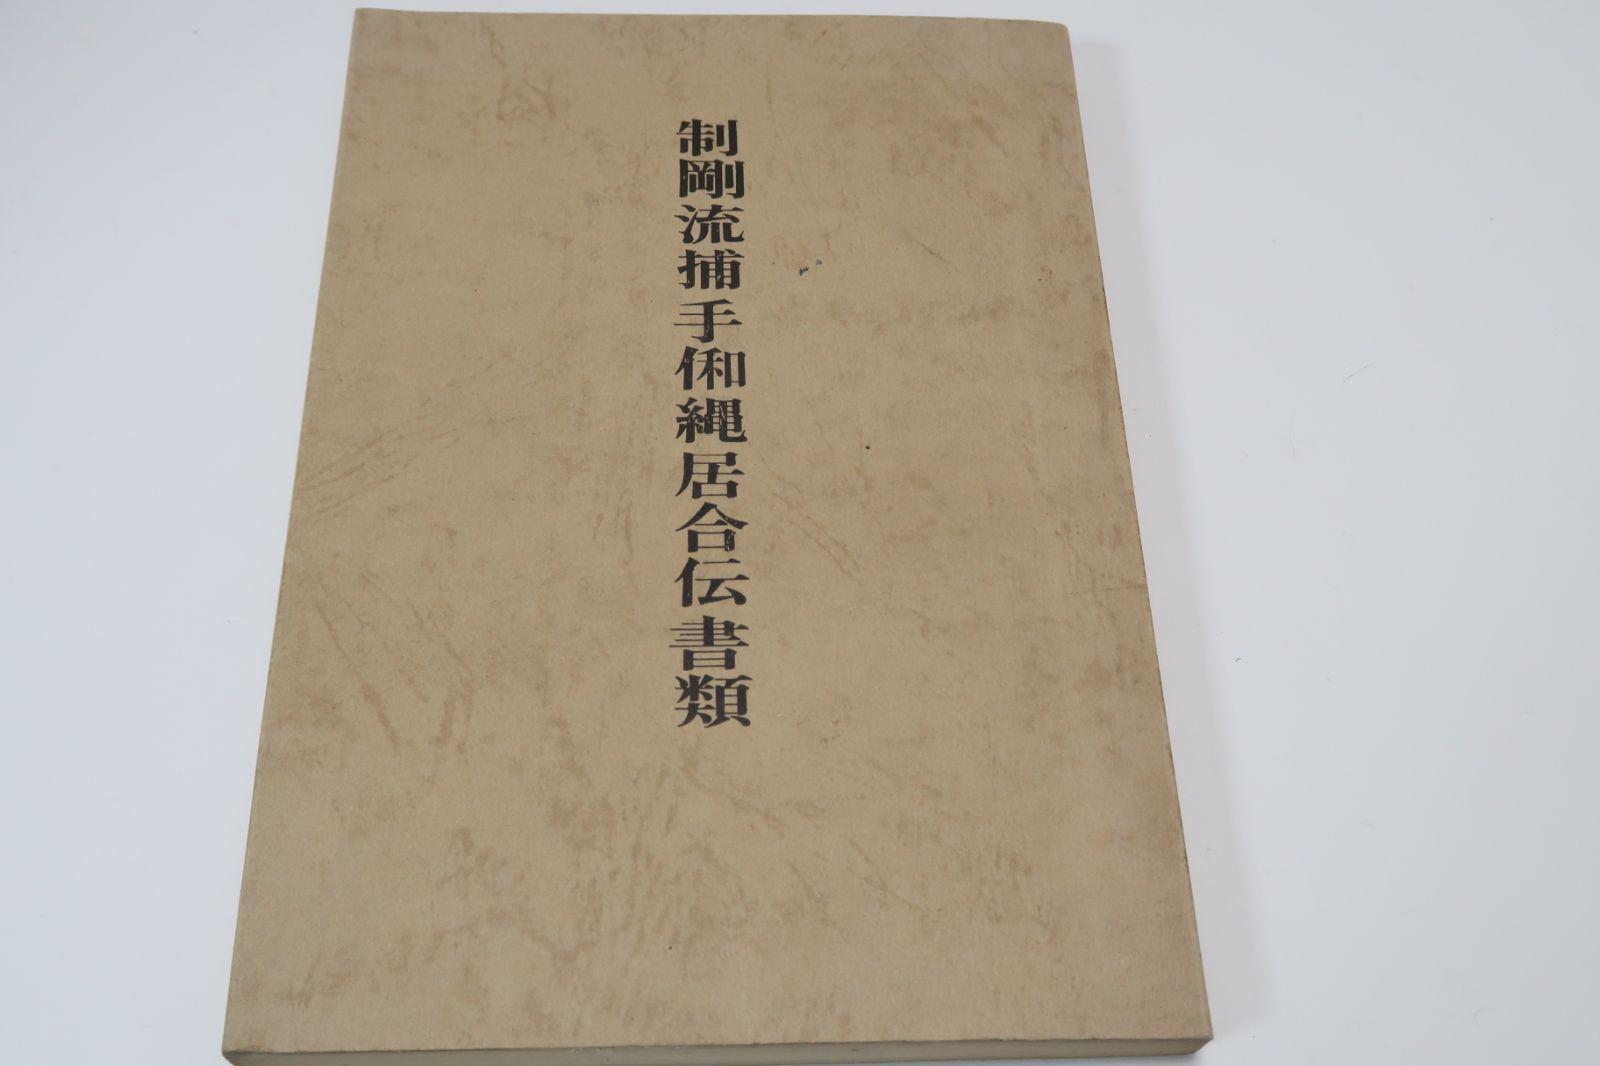 制剛流捕手俰縄居合伝書類